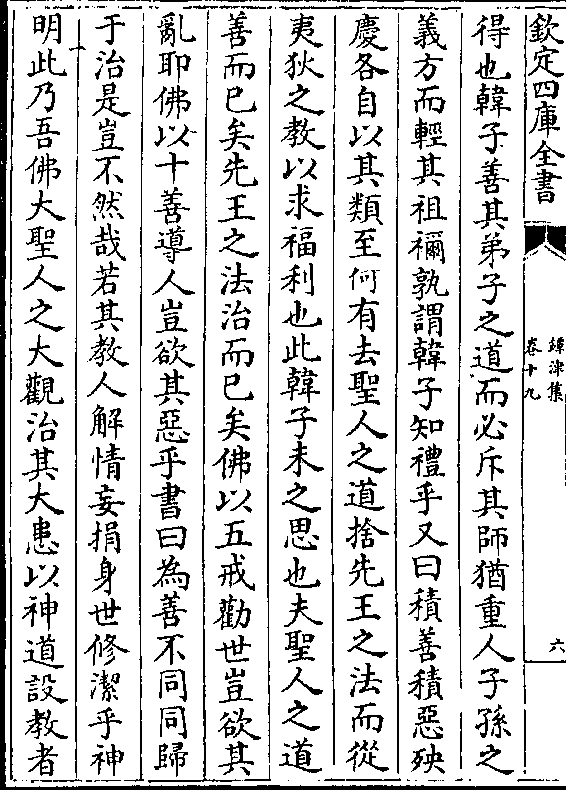 欽定四庫全書
鐔津集
卷十九
六
得也韓子善其弟子之道而必斥其師猶重人子孫之
義方而輕其祖禰孰謂韓子知禮乎又曰積善積惡殃
慶各自以其類至何有去聖人之道捨先王之法而從
夷狄之教以求福利也此韓子未之思也夫聖人之道
善而已矣先王之法治而已矣佛以五戒勸世豈欲其
亂耶佛以十善導人豈欲其惡乎書曰為善不同同歸
于治是豈不然哉若其教人解情妄捐身世修潔乎神
明此乃吾佛大聖人之大觀治其大患以神道設教者